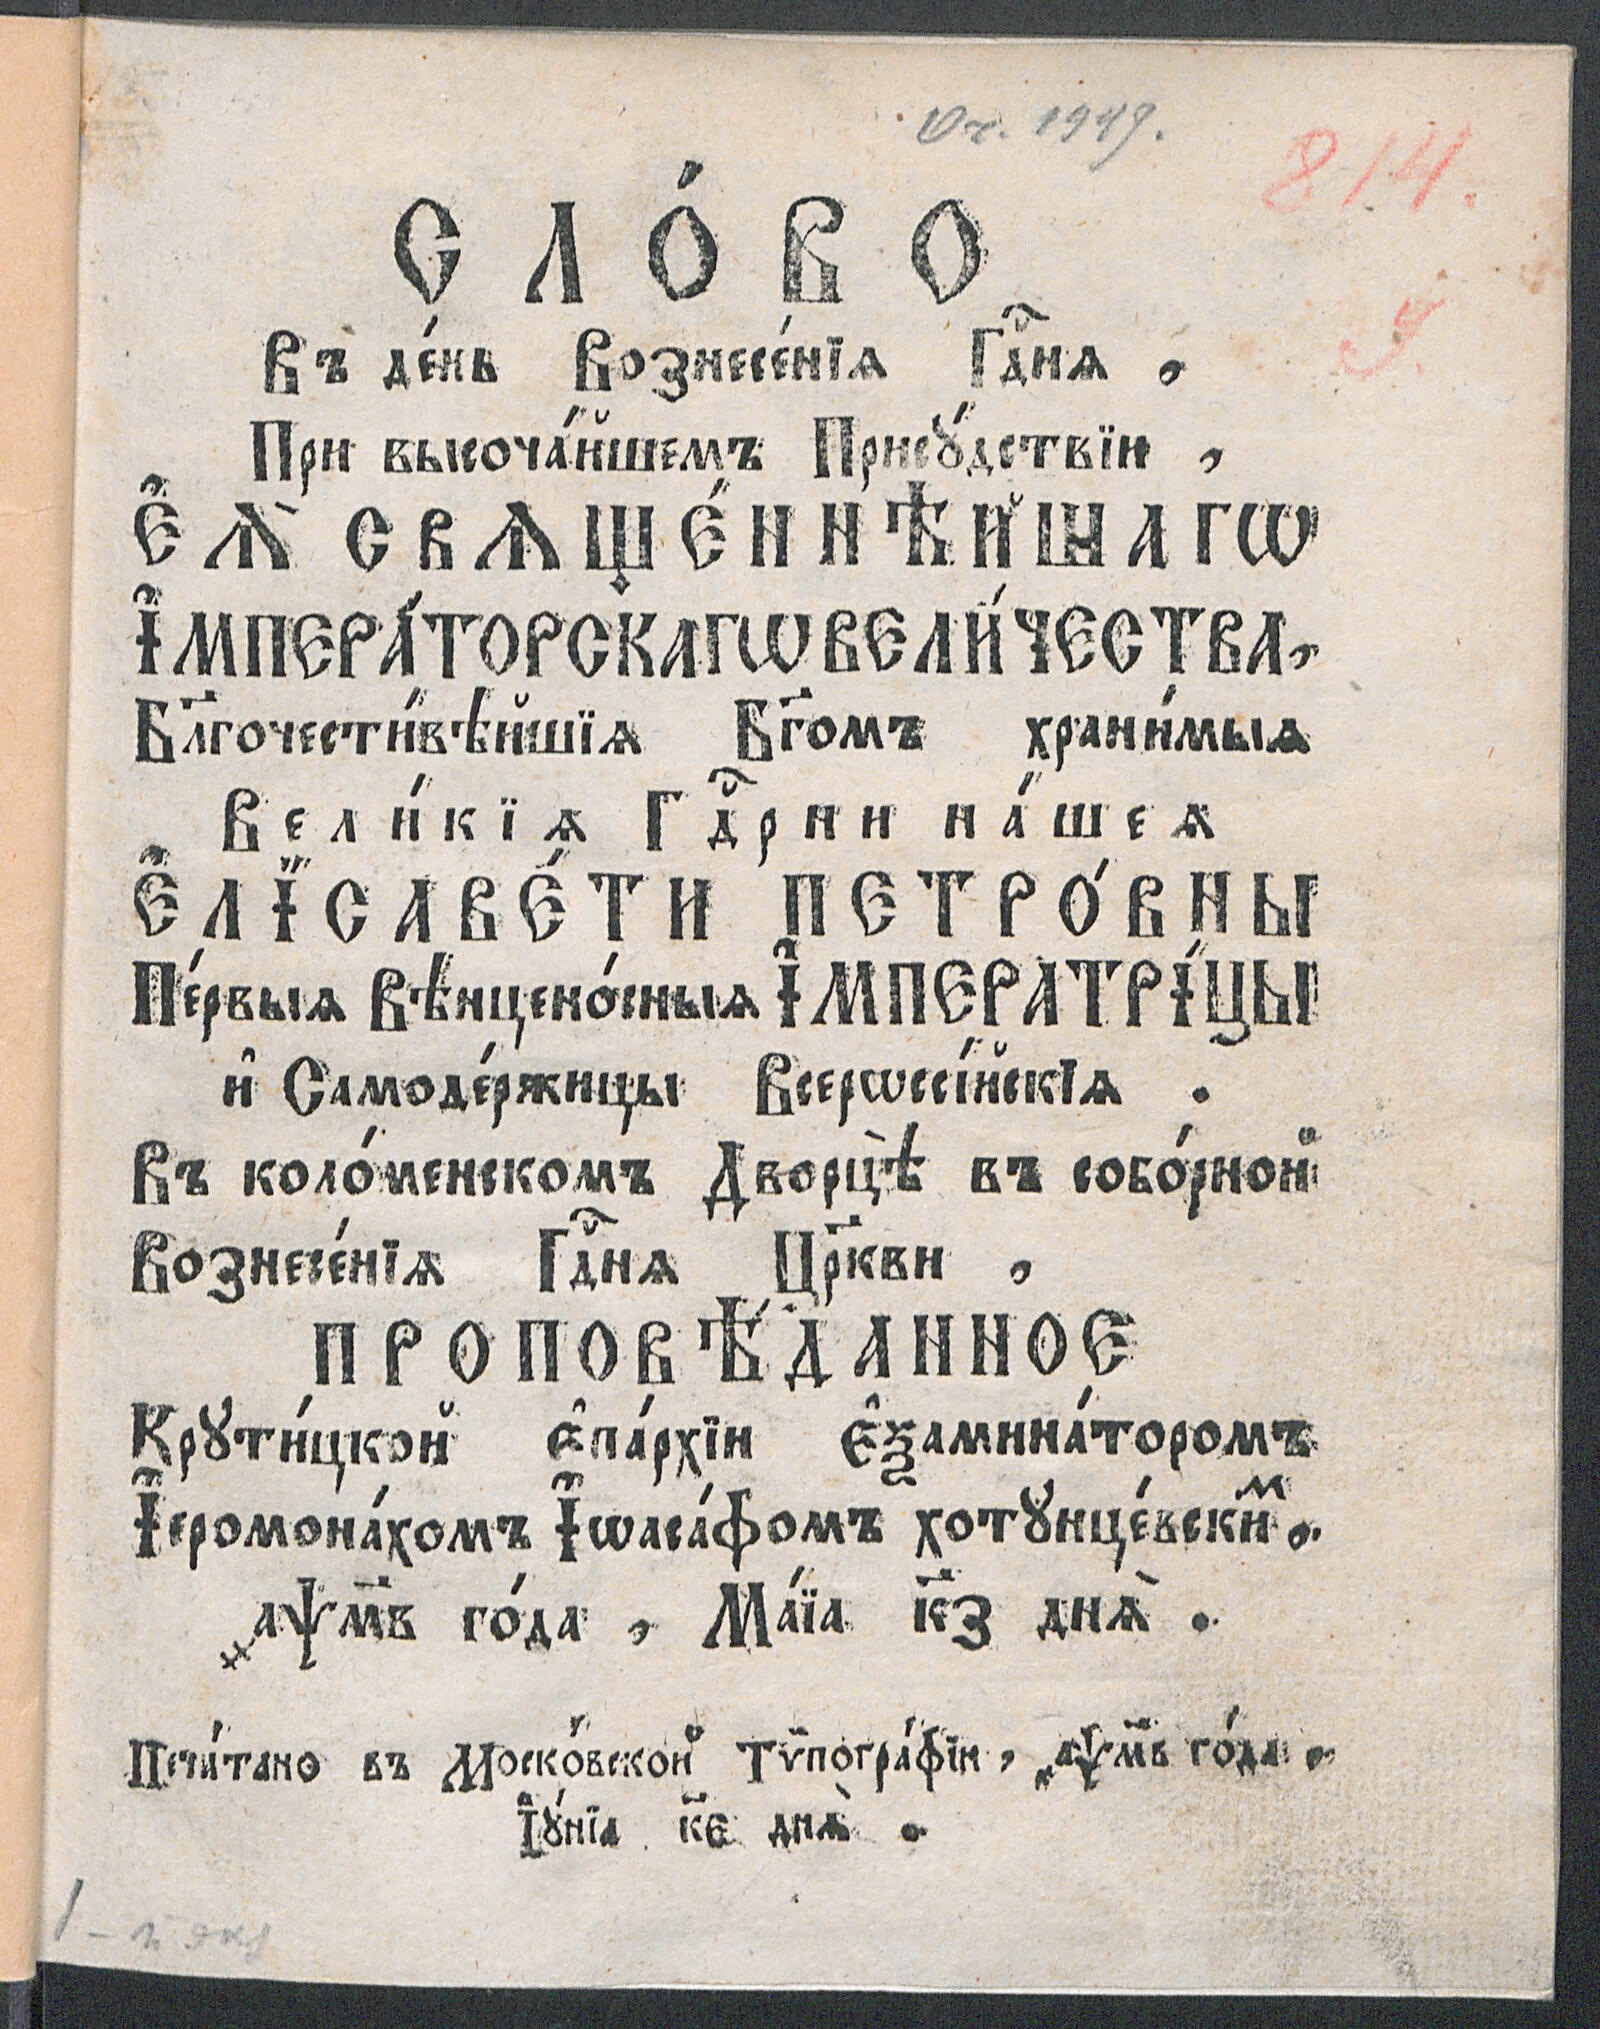 От. 1949.
814.
СЛО́ВО
Въ де́нь Вознесе́нїѧ Гдⷭ҇нѧ,
При высоча́йшемъ Присꙋ́дствїи,
Є҆Ѧ̀ СВѦЩЕ́ННѢЙШАГѠ
І҆МПЕРА́ТОРСКАГѠ ВЕЛИ́ЧЕСТВА,
Бл҃гочести́вѣйшїѧ Бг҃омъ храни́мыѧ
Вели́кїѧ Гдⷭ҇рни на́шеѧ
Є҆ЛЇСАВЕ́ТИ ПЕТРО́ВНЫ
Пе́рвыѧ Вѣнцено́сныѧ І҆МПЕРАТРІ́ЦЫ
и҆ Самоде́ржицы Всерѡссі́йскїѧ.
Въ коло́менскомъ Дворцѣ̀ въ собо́рной
Вознесе́нїѧ Гдⷭ҇нѧ Цр҃кви,
ПРОПОВѢ́ДАННОЕ
Крꙋти́цкой є҆па́рхїи є҆ѯамина́торомъ
І҆еромона́хомъ І҆ѡаса́фомъ хотꙋнце́вскиⷨ,
҂аѱм҃в го́да, Ма́їа к҃з днѧ̀.
Печа́тано въ Моско́вской Тѷпогра́фїи, ҂аѱм҃в го́да,
І҆ꙋ́нїа к҃є днѧ̀.